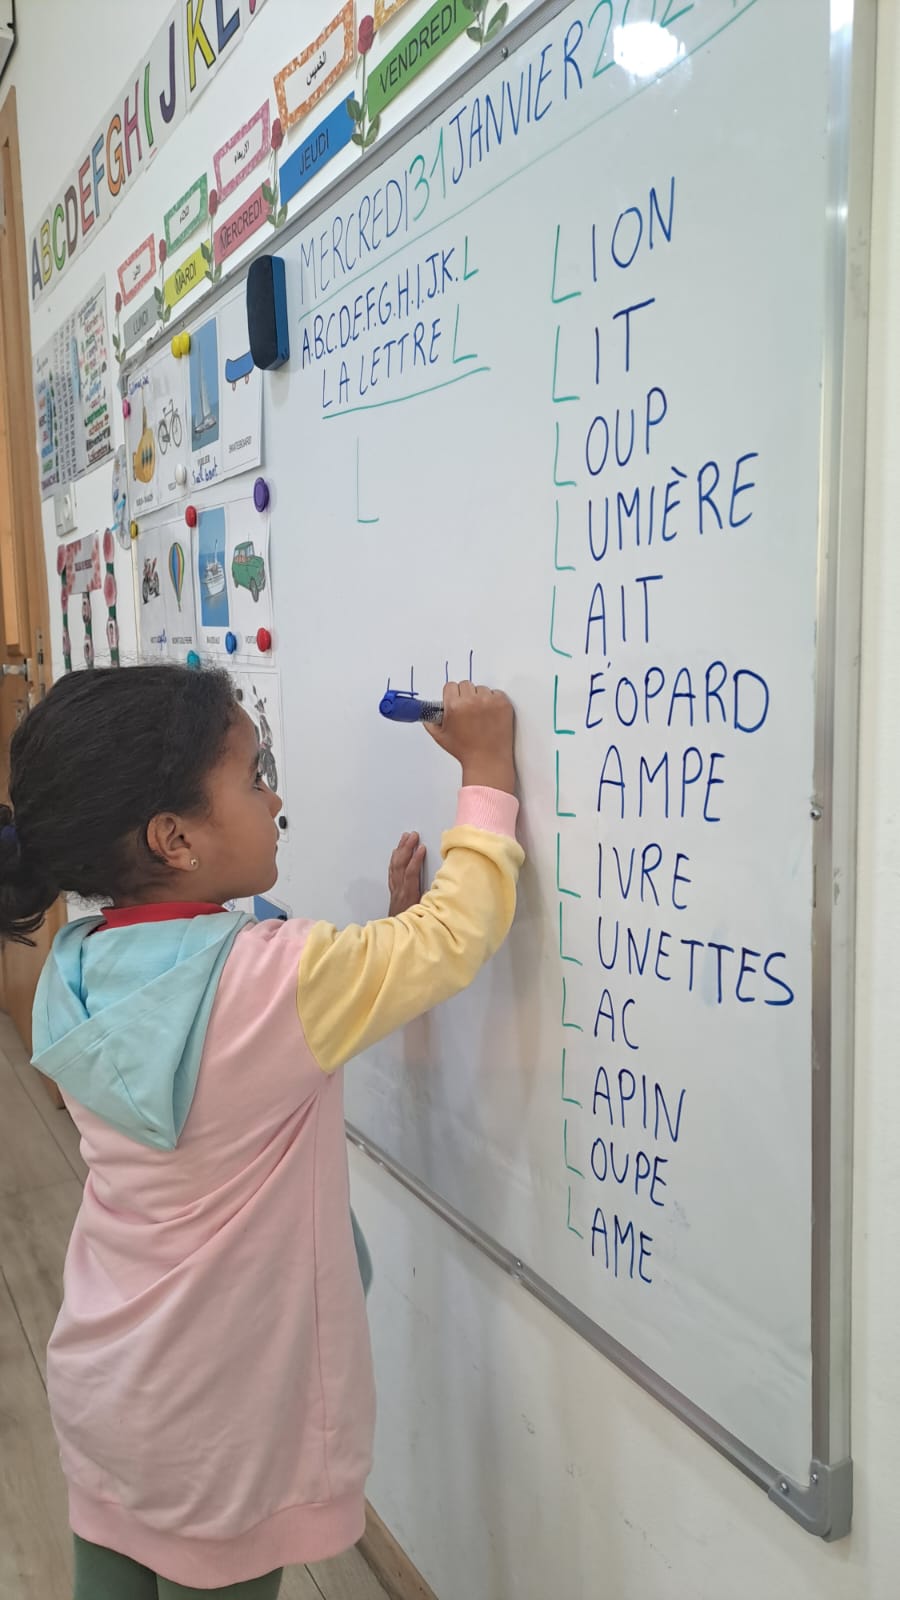 ABCDEFGHIJKL
الخميس
VENDREDI
الأربعاء
JEUDI
MERCREDI
MARDI
LUNDI
MERCREDI 31 JANVIER 2024
A.B.C.D.E.F.G.H.I.J.K.L
LA LETTRE L
L
SKATEBOARD
Sail boat
LION
LIT
LOUP
LUMIÈRE
LAIT
LÉOPARD
LAMPE
LIVRE
LUNETTES
LAC
LAPIN
LOUPE
LAME